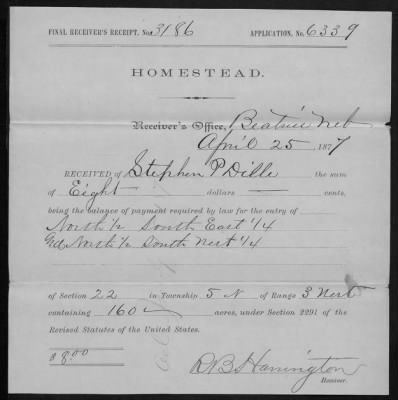 FINAL RECEIVER'S RECEIPT, No. 3186 APPLICATION, No. 6339
HOMESTEAD.
Receiver's Office, Beatrice Neb
April 25, 1877
RECEIVED of Stephen P Dille the sum
of Eight dollars — cents,
being the balance of payment required by law for the entry of
North ½ South East ¼
and North ½ South West ¼
of Section 22 in Township 5 N of Range 3 West
containing 160 acres, under Section 2291 of the
Revised Statutes of the United States.
$ 8.00
R B Harrington
Receiver.